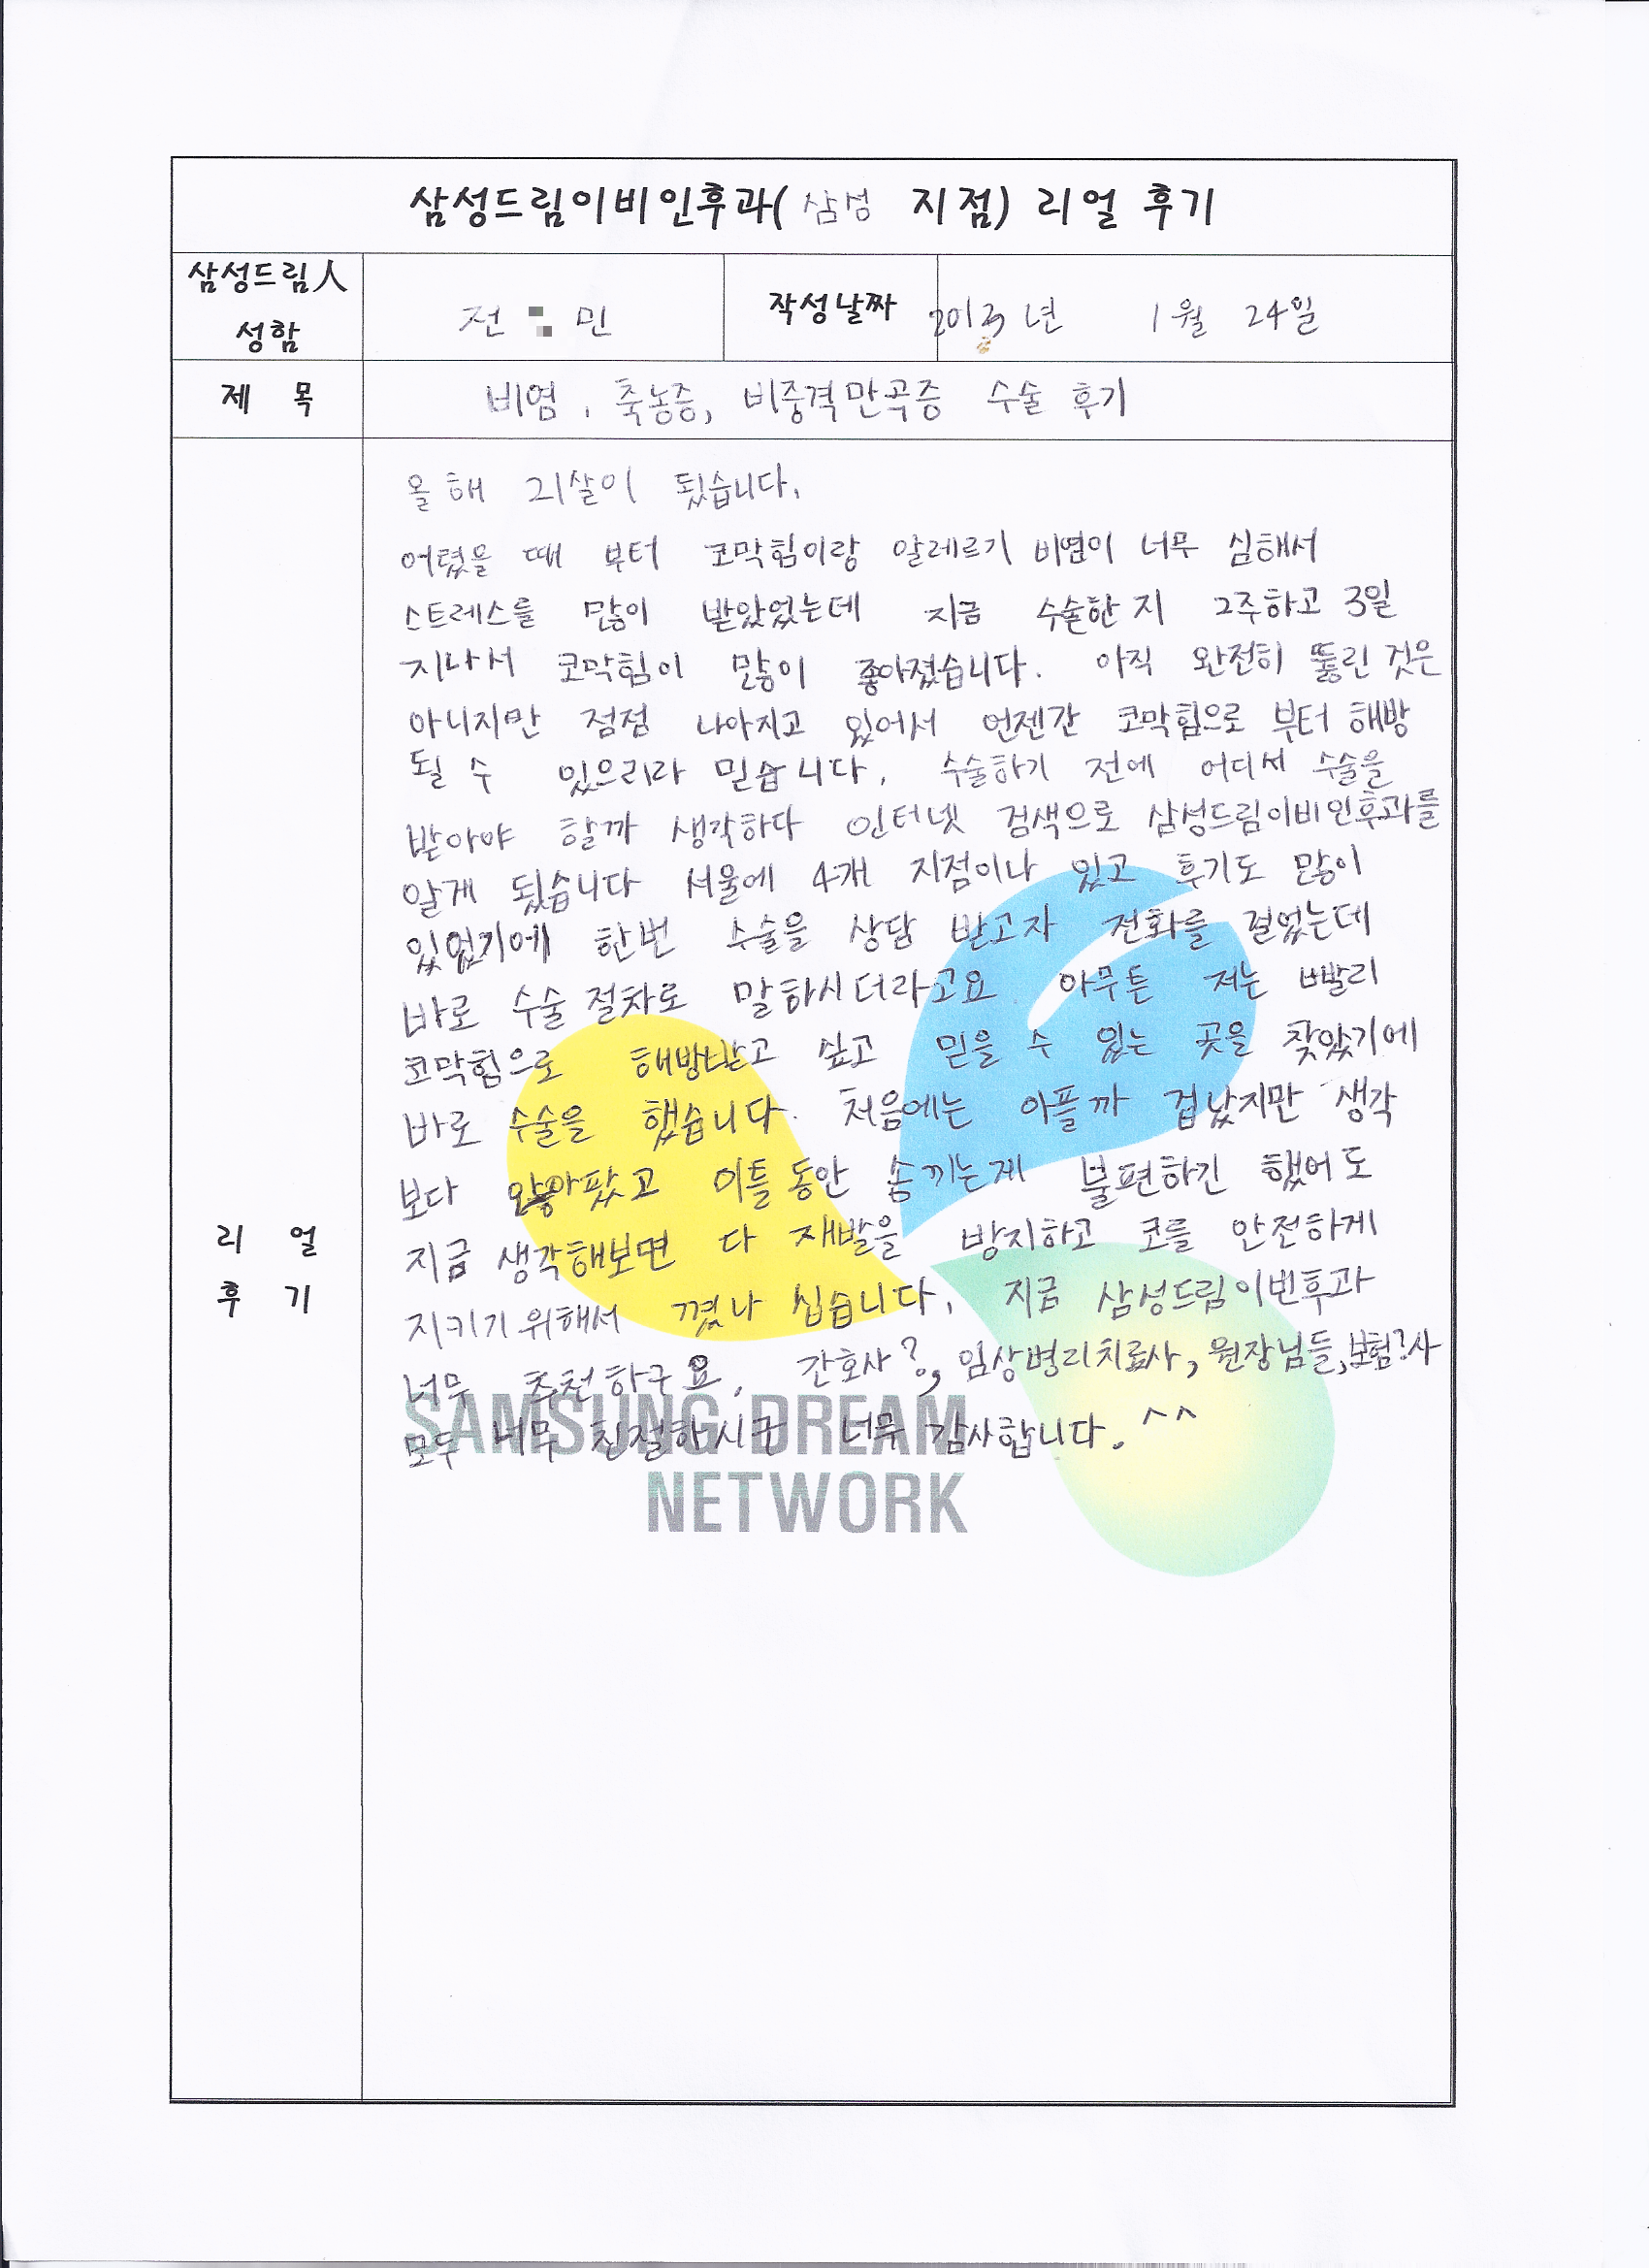 삼성드림이비인후과( 삼성 지점) 리얼 후기
삼성드림人
성함
전 민
작성날짜
2013년 1월 24일
제 목
비염, 축농증, 비중격만곡증 수술 후기
올해 21살이 됬습니다.
어렸을 때 부터 코막힘이랑 알레르기 비염이 너무 심해서
스트레스를 많이 받았었는데 지금 수술한 지 2주하고 3일
지나서 코막힘이 많이 좋아졌습니다. 아직 완전히 뚫린 것은
아니지만 점점 나아지고 있어서 언젠간 코막힘으로 부터 해방
될 수 있으리라 믿습니다. 수술하기 전에 어디서 수술을
받아야 할까 생각하다 인터넷 검색으로 삼성드림이비인후과를
알게 됬습니다 서울에 4개 지점이나 있고 후기도 많이
있었기에 한번 수술을 상담 받고자 전화를 걸었는데
바로 수술 절차로 말하시더라고요 아무튼 저는 빨리
코막힘으로 해방받고 싶고 믿을 수 있는 곳을 찾았기에
바로 수술을 했습니다. 처음에는 아플까 겁났지만 생각
보다 안아팠고 이틀 동안 솜끼는게 불편하긴 했어도
지금 생각해보면 다 재발을 방지하고 코를 안전하게
지키기 위해서 꼈나 십습니다. 지금 삼성드림이빈후과
너무 추천하구요. 간호사?, 임상병리치료사, 원장님들, 보험?사
모두 너무 친절하시구 너무 감사합니다. ^^
리 얼
후 기
SAMSUNG DREAM
NETWORK